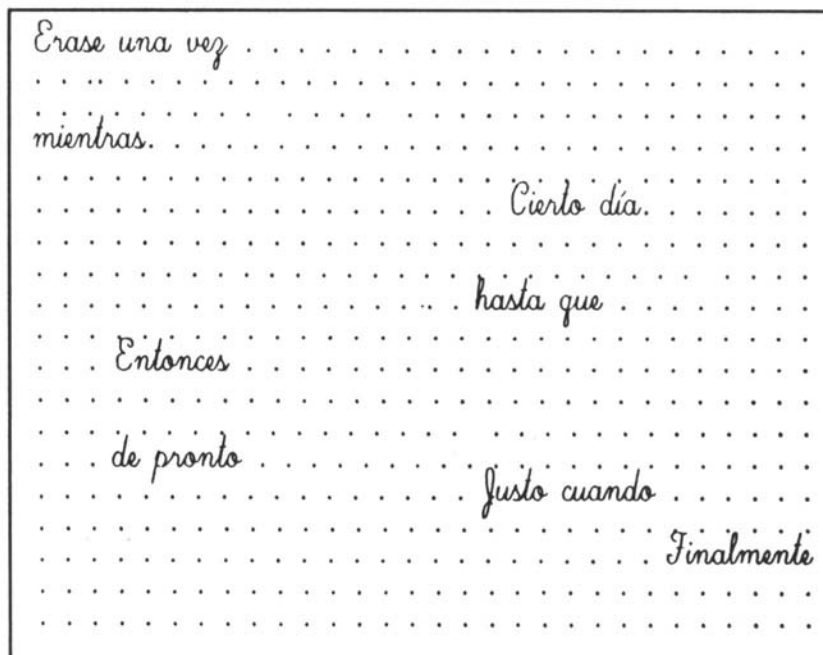 Erase una vez
mientras.
Cierto día.
hasta que
Entonces
de pronto
Justo cuando
Finalmente